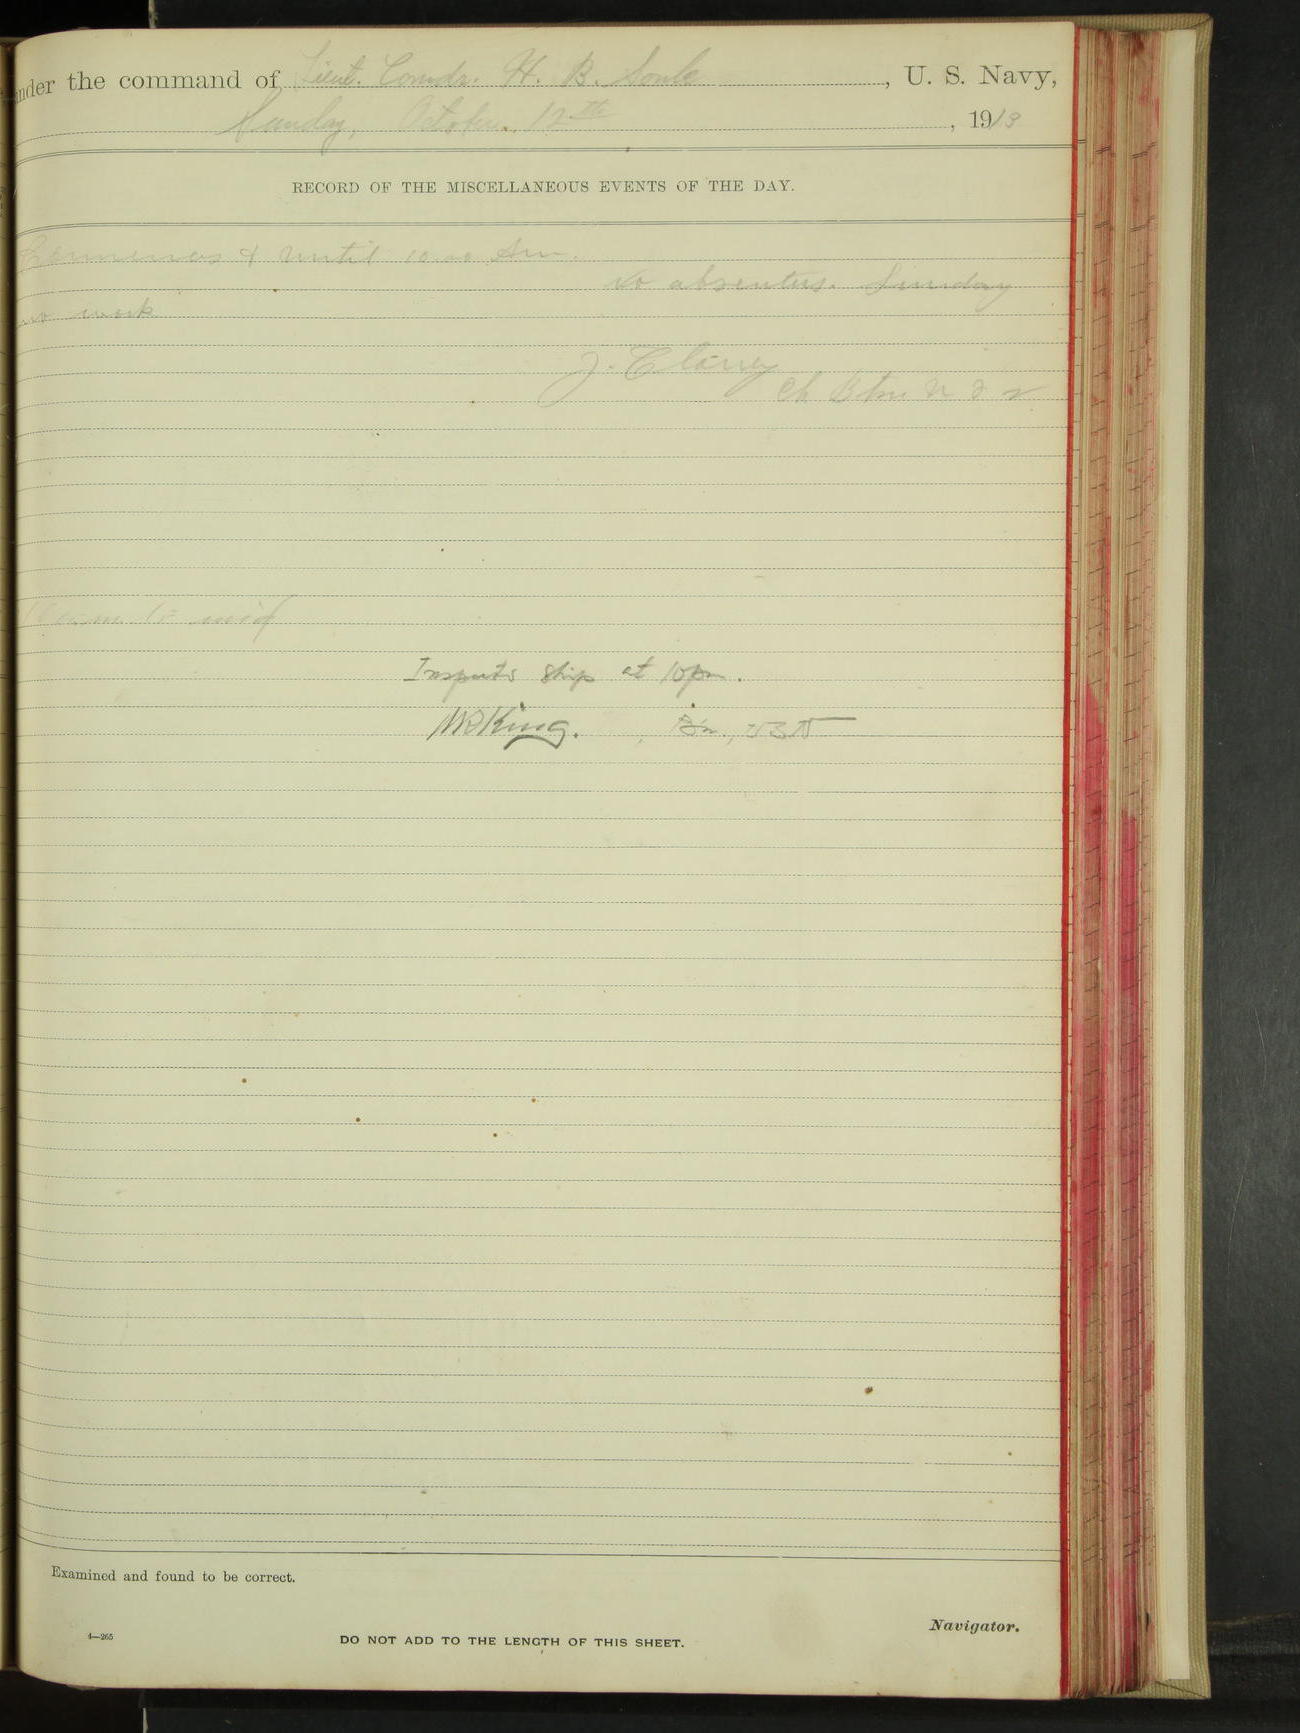 under the command of Lieut. Comdr. H. B. Soule, U. S. Navy,
Sunday, October 12th, 1913
RECORD OF THE MISCELLANEOUS EVENTS OF THE DAY.
& until 10.00 Am.
No absentees. Sunday
no work
J. Clancy
Ch Btsn U S N
to mid
Inspects ship at 10pm.
WRKing. , Bn., USN
Examined and found to be correct.
Navigator.
4—265
DO NOT ADD TO THE LENGTH OF THIS SHEET.